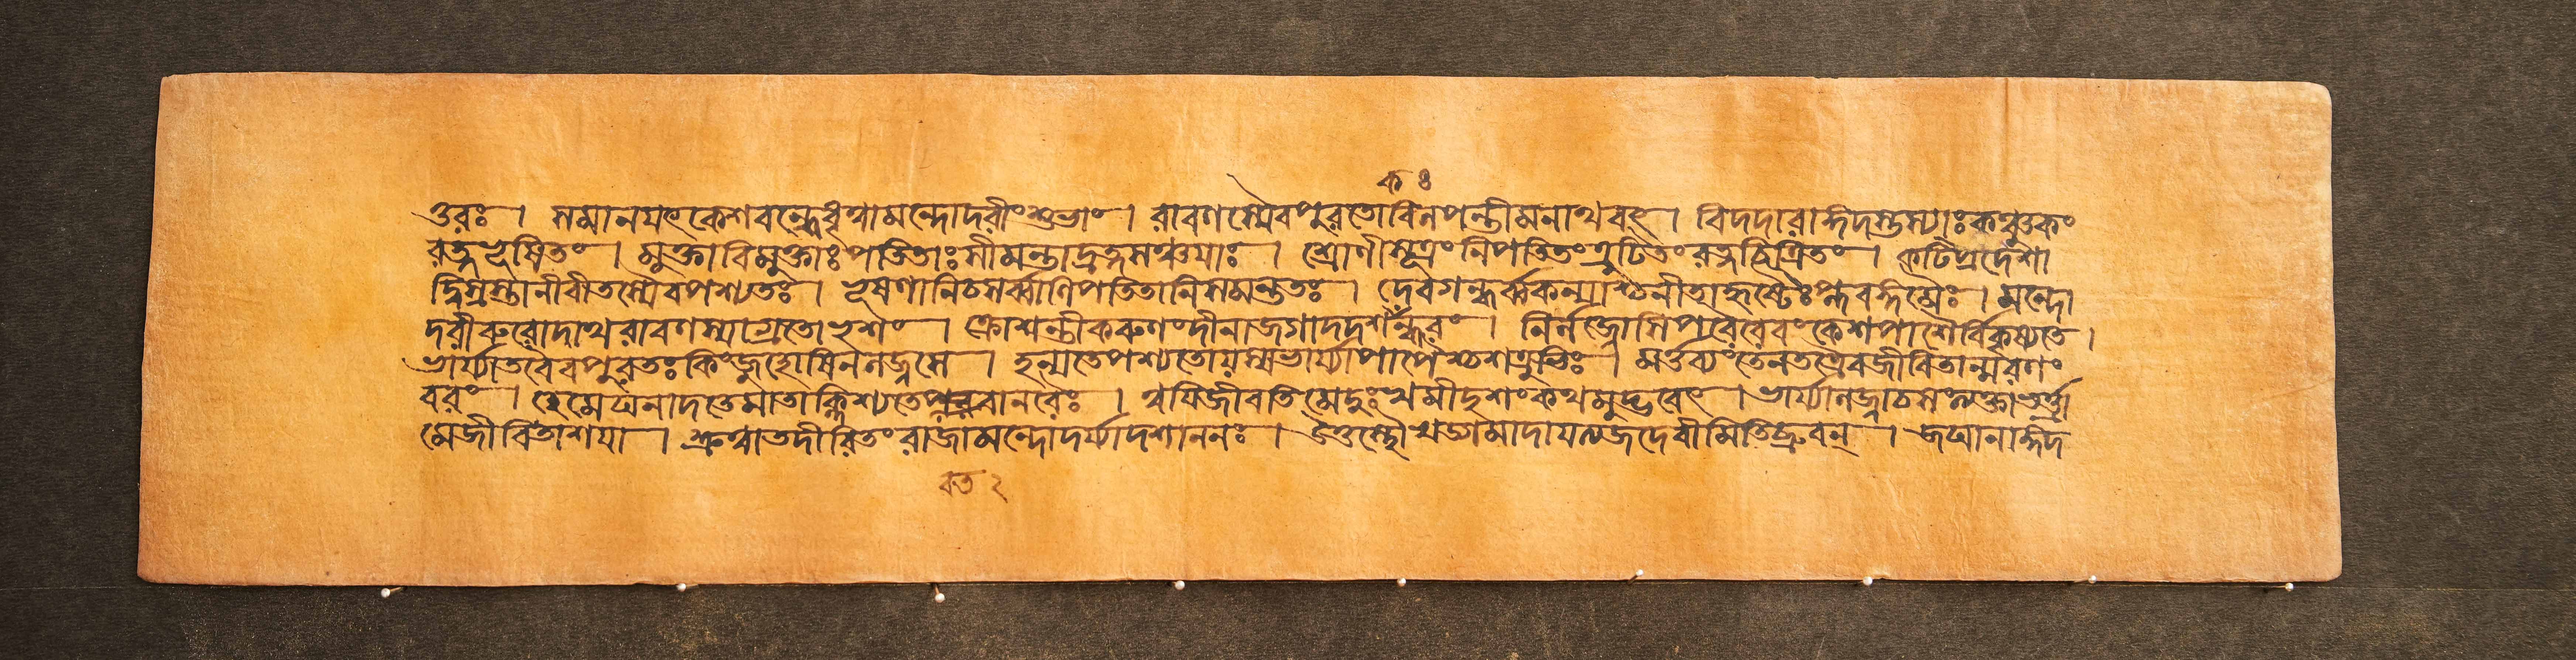 কঃ
ত্তরঃ । সমানয়ৎকেশবন্ধেধৃত্বামন্দোদরীংশুভাং । রাবণস্যৈবপুরতোবিলপন্তীমনাথবৎ । বিদদারাঙ্গদস্তস্যাঃকঞ্চুকং
রত্নভূষিতং । মুক্তাবিমুক্তাঃপতিতাঃসীমন্তাদ্রত্নসঞ্চয়াঃ । শ্রোণীসূত্রংনিপতিতংত্রুটিতংরত্নচিত্রিতং । কটিপ্রদেশা
দ্বিস্রস্তানীবীতস্যৈবপশ্যতঃ । ভূষণানিচসর্ব্বাণিপতিতানিসমন্ততঃ । দেবগন্ধর্ব্বকন্যাশ্চনীতাহৃষ্টৈঃপ্লবঙ্গমৈঃ । মন্দো
দরীরুরোদাথরাবণস্যাগ্রতোভৃশং । ক্রোশন্তীকরুণংদীনাজগাদদশকন্ধরং । নির্লজ্জোসিপরৈরেবংকেশপাশৈর্বিকৃষ্যতে ।
ভার্য্যাতবৈবপুরতঃকিংজুহোষিনলজ্জসে । হন্যতেপশ্যতোয়স্যভার্য্যাপাপৈশ্চশত্রুভিঃ । মর্ত্তব্যংতেনতত্রৈবজীবিতান্মরণং
বরং । হেমেঘনাদতেমাতাক্লিশ্যতেবানরৈঃ । ত্বয়িজীবতিমেদুঃখমীদৃশংকথমুদ্ভবেৎ । ভার্য্যালজ্জাচসংত্যক্তাভর্ত্রা
মেজীবিতাশয়া । শ্রুত্বাতদীরিতংরাজামন্দোদর্য্যাদশাননঃ । উত্তস্থৌখড্গমাদায়ত্যজদেবীমিতিব্রুবন্ । জঘানাঙ্গদ
বত ২